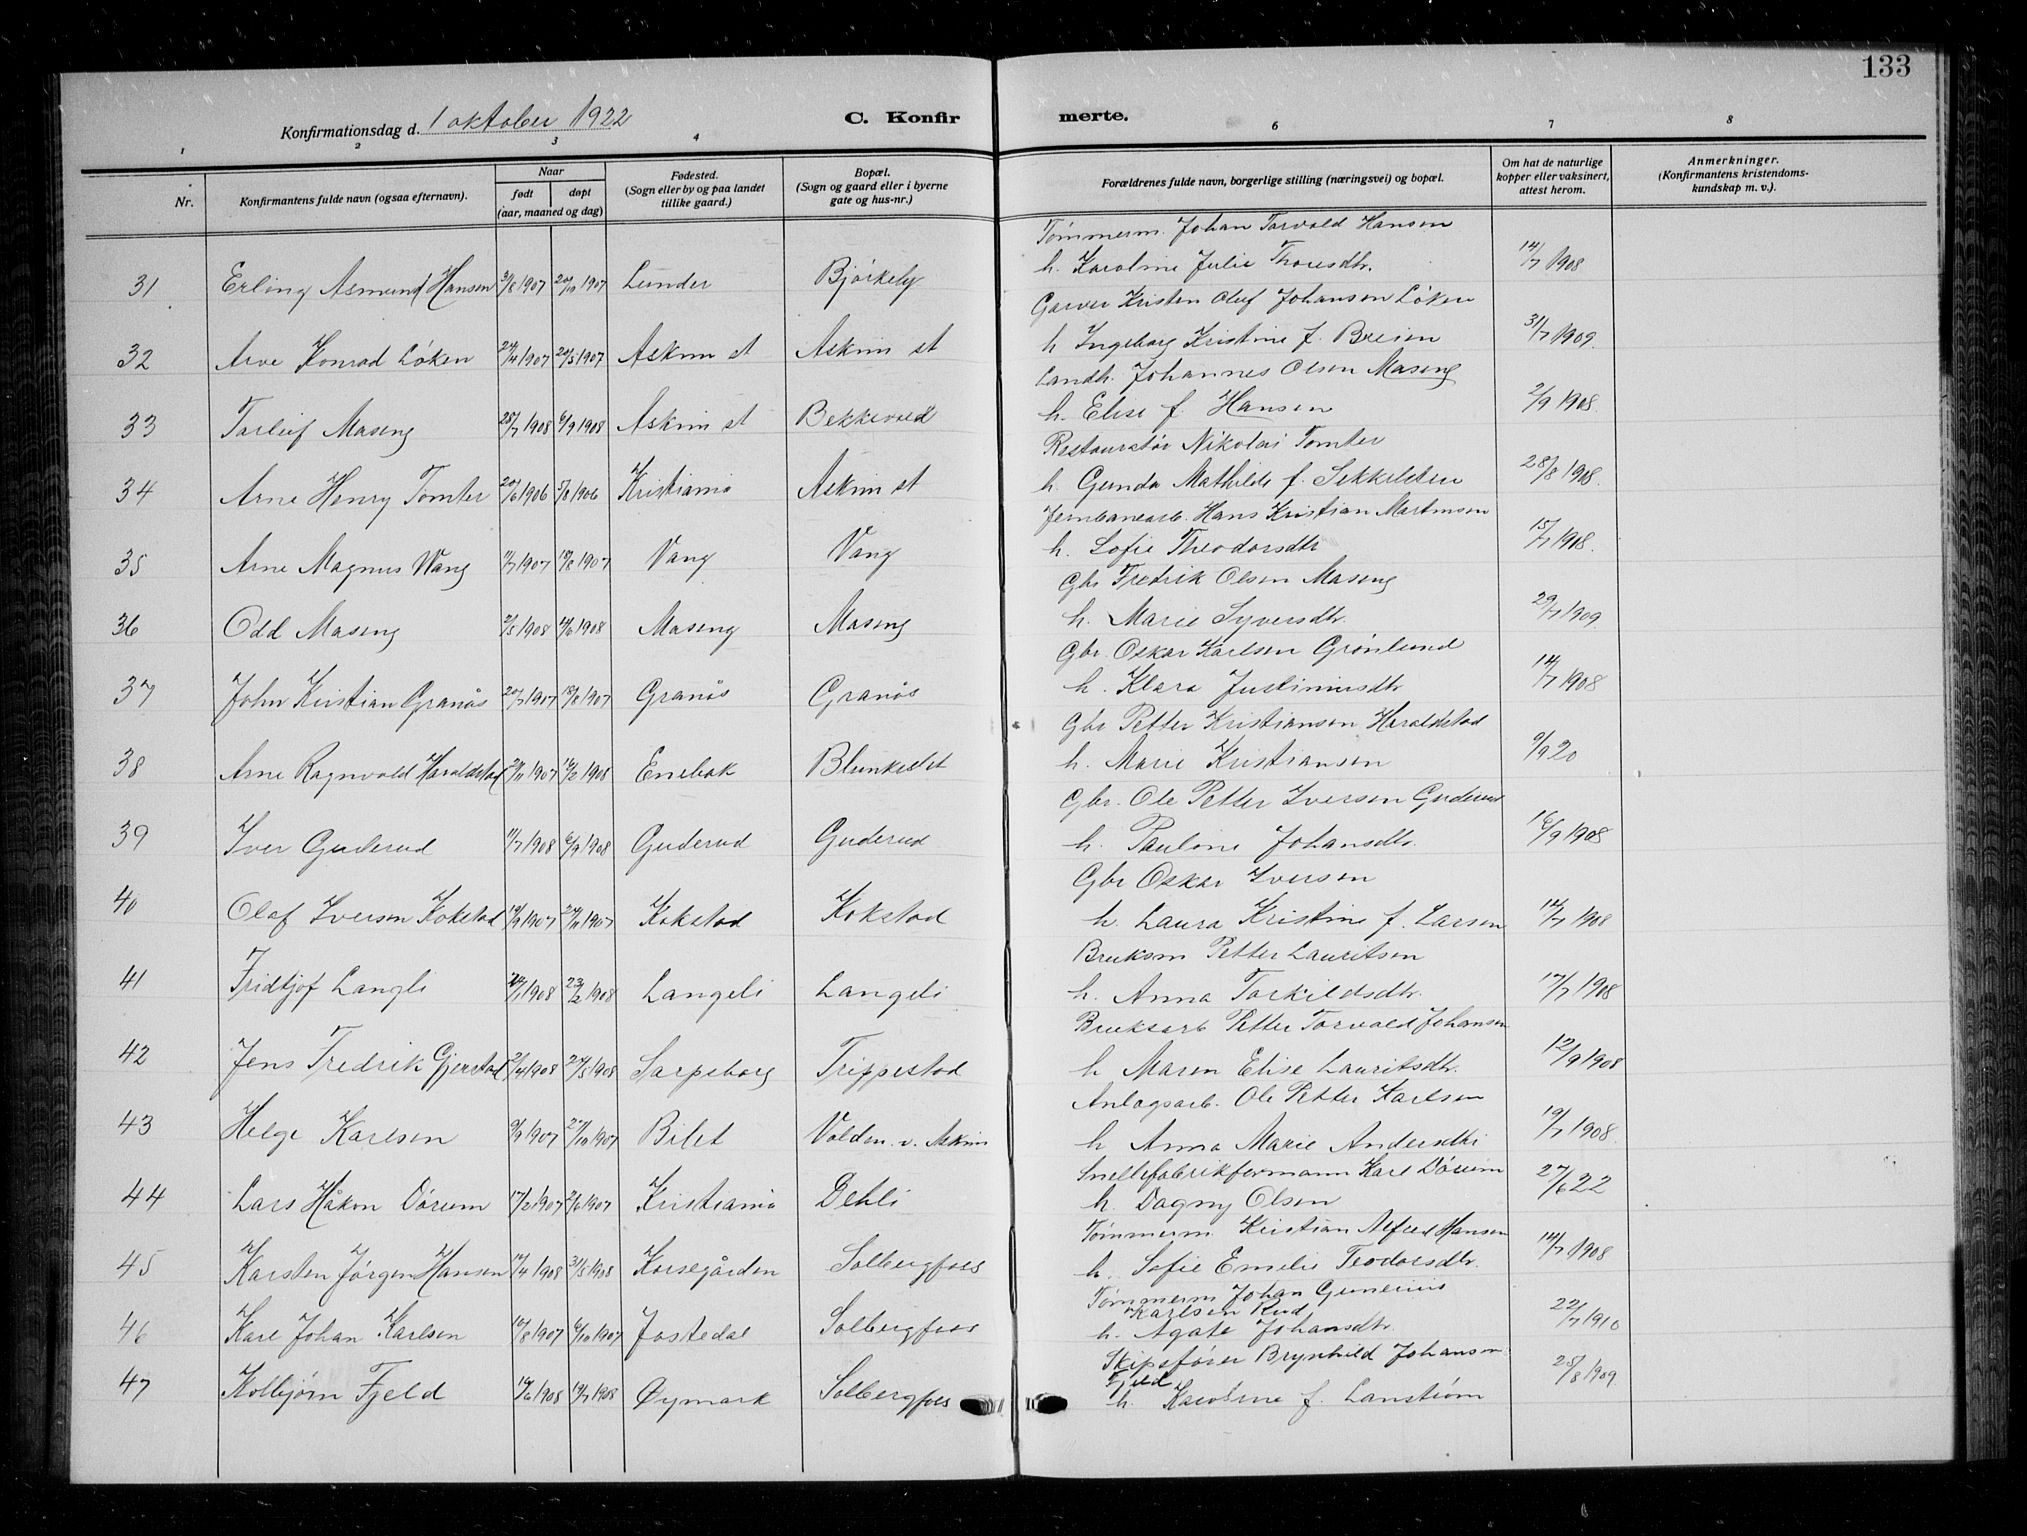 133
Konfirmationsdag d. 1 oktober 1922
C. Konfirmerte.
1 2 3 4 6 7 8
Nr.
Konfirmantens fulde navn (ogsaa efternavn).
Naar
født døpt
(aar, maaned og dag)
Fødested.
(Sogn eller by og paa landet
tillike gaard.)
Bopæl.
(Sogn og gaard eller i byerne
gate og hus-nr.)
Forældrenes fulde navn, borgerlige stilling (næringsvei) og bopæl.
Om hat de naturlige
kopper eller vaksinert,
attest herom.
Anmerkninger.
(Konfirmantens kristendoms-
kundskap m. v.).
Tømmerm. Johan Torvald Hansen
31 Erling Asmund Hansen 31/8 1907 20/10 1907 Lunder Bjørkely h. Karoline Julie Thoresdtr. 14/7 1908
Garver Kristen Oluf Johansen Løken
32 Arve Konrad Løken 24/4 1907 20/5 1907 Askim st Askim st h Ingeborg Kristine f. Breien 31/7 1909.
Landh. Johannes Olsen Maseng
33 Torleif Maseng 28/7 1908 6/9 1908 Askim st Bekkevold h. Elise f. Hansen 2/9 1908.
Restauratør Nikolai Tomter
34 Arne Henry Tomter 20/6 1906 5/8 1906 Kristiania Askim st h. Gunda Mathilde f. Sekkelsten 28/8 1908.
Jernbanearb. Hans Kristian Martinsen
35 Arne Magnus Wang 11/7 1907 18/8 1907 Vang Vang h. Sofie Theodorsdtr 15/7 1908.
Gbr Fredrik Olsen Maseng
36 Odd Maseng 2/5 1908 14/6 1908 Maseng Maseng h. Marie Syversdtr. 29/7 1909.
Gbr. Oskar Karlsen Grønlund
37 John Kristian Granås 20/7 1907 18/8 1907 Granås Granås h. Klara Justiniusdtr 14/7 1908
Gbr Petter Kristiansen Haraldstad
38 Arne Ragnvald Haraldstad 21/11 1907 16/2 1908 Enebak h. Marie Kristiansen 9/9 20
Gbr. Ole Petter Iversen Guderud
39 Iver Guderud 11/7 1908 6/9 1908 Guderud Guderud h. Pauline Johansdtr. 16/9 1908
Gbr Oskar Iversen
40 Olaf Iversen Kokstad 19/9 1907 24/11 1907 Kokstad Kokstad h. Laura Kristine f. Larsen 14/7 1908
Bruksm Petter Lauritsen
41 Fridtjof Langli 1908 23/2 1908 Langeli Langeli h. Anna Torkildsdtr. 17/7 1908
Bruksarb Petter Torvald Johansen
42 Jens Fredrik Gjerstad 2/4 1908 24/5 1908 Sarpsborg Trippestad h Maren Elise Lauritsdtr. 12/9 1908
Anlægsarb. Ole Petter Karlsen
43 Helge Karlsen 9/9 1907 27/10 1907 Bilet Volden v. Askim h Anna Marie Andersdtr 19/7 1908.
Snellefabrikformann Karl Dørum
44 Lars Håkon Dørum 17/2 1907 2/6 1907 Kristiania Dehli h. Dagny Olsen 27/6 22
Tømmerm. Kristian Alfred Hansen
45 Karsten Jørgen Hansen 14/4 1908 31/5 1908 Korsegården Solbergfoss h. Sofie Emelie Teodorsdtr. 14/7 1908
Tømmerm Johan Gunerius
Karlsen Rud
46 Karl Johan Karlsen 10/8 1907 6/10 1907 Jostedal Solbergfoss h. Agate Johansdtr. 22/7 1910
Skipsfører Brynhild Johansen
Fjeld
47 Kolbjørn Fjeld 14/6 1908 19/7 1908 Øymark Solbergfoss h. Karoline f. Lanstrøm 25/8 1909